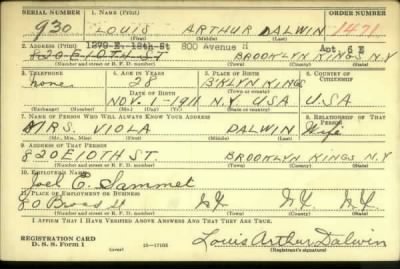 SERIAL NUMBER 1. NAME (Print) ORDER NUMBER
930 LOUIS ARTHUR DALWIN 1471
(First) (Middle) (Last)
2. ADDRESS (Print) 1279 E. 18th St 800 Avenue H Apt 6 E
820 E 10TH ST BROOKLYN KINGS N.Y
(Number and street or R. F. D. number) (Town) (County) (State)
3. TELEPHONE 4. AGE IN YEARS 5. PLACE OF BIRTH 6. COUNTRY OF CITIZENSHIP
none 28 BKLYN KINGS
DATE OF BIRTH (Town or county)
NOV. 1 - 1911 N.Y, USA U.S.A
(Exchange) (Number) (Mo.) (Day) (Yr.) (State or country)
7. NAME OF PERSON WHO WILL ALWAYS KNOW YOUR ADDRESS 8. RELATIONSHIP OF THAT PERSON
MRS. VIOLA DALWIN Wife
(Mr., Mrs., Miss) (First) (Middle) (Last)
9. ADDRESS OF THAT PERSON
820 E 10TH ST. BROOKLYN KINGS N.Y
(Number and street or R. F. D. number) (Town) (County) (State)
10. EMPLOYER'S NAME
Joel E. Sammet
11. PLACE OF EMPLOYMENT OR BUSINESS
80 Broad St NY NY NY
(Number and street or R. F. D. number) (Town) (County) (State)
I AFFIRM THAT I HAVE VERIFIED ABOVE ANSWERS AND THAT THEY ARE TRUE.
REGISTRATION CARD
D. S. S. Form 1 (over) Louis Arthur Dalwin
(Registrant's signature)